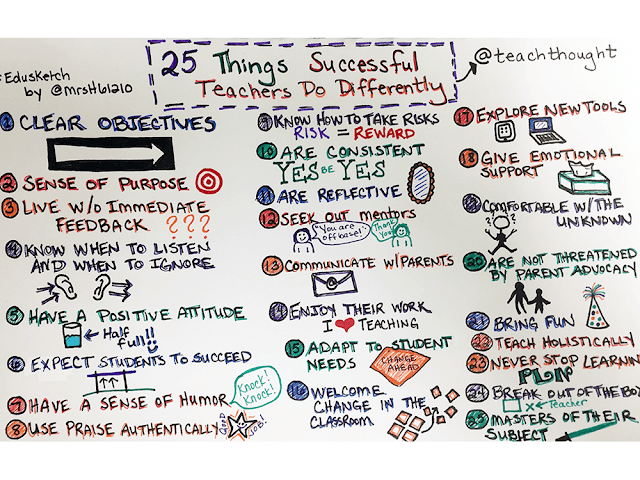 25 Things Successful
Teachers Do Differently
@teachthought
#EduSketch
by @mrsHl61210
1 CLEAR OBJECTIVES
2 SENSE OF PURPOSE
3 LIVE W/O IMMEDIATE
FEEDBACK ???
4 KNOW WHEN TO LISTEN
AND WHEN TO IGNORE
5 HAVE A POSITIVE ATTITUDE
Half
full!!
6 EXPECT STUDENTS TO SUCCEED
7 HAVE A SENSE OF HUMOR
Knock!
Knock!
8 USE PRAISE AUTHENTICALLY
GOOD JOB!
9 KNOW HOW TO TAKE RISKS
RISK = REWARD
10 ARE CONSISTENT
YES BE YES
11 ARE REFLECTIVE
12 SEEK OUT MENTORS
"You are
off base!"
Thank
You!
13 COMMUNICATE W/PARENTS
14 ENJOY THEIR WORK
I ❤ TEACHING
15 ADAPT TO STUDENT
NEEDS
CHANGE
AHEAD
16 WELCOME
CHANGE IN THE
CLASSROOM
17 EXPLORE NEW TOOLS
18 GIVE EMOTIONAL
SUPPORT
19 COMFORTABLE W/THE
UNKNOWN
? ?
20 ARE NOT THREATENED
BY PARENT ADVOCACY
21 BRING FUN
22 TEACH HOLISTICALLY
23 NEVER STOP LEARNIN
PLN
24 BREAK OUT OF THE BOX
x ← Teacher
25 MASTERS OF THEIR
SUBJECT